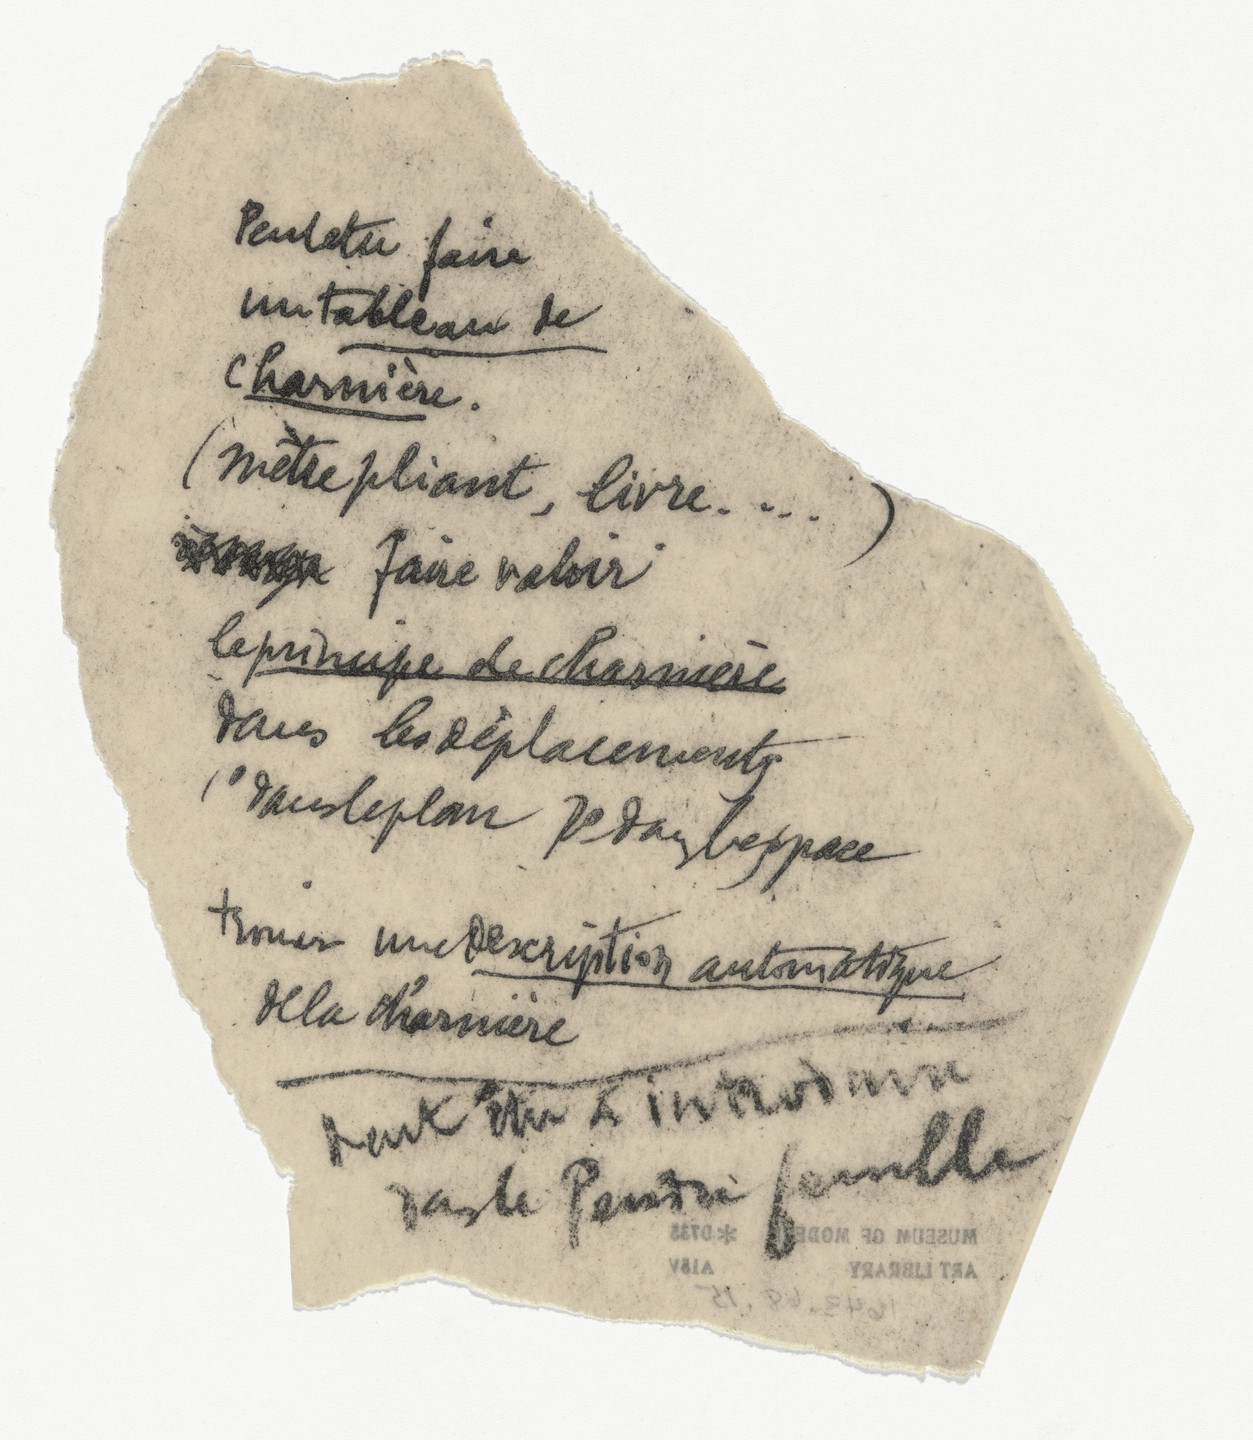 Peut être faire
un tableau de
charnière.
(mètre pliant, livre. ...)
faire valoir
le principe de charnière
dans les déplacements
1° dans le plan 2° dans l'espace
trouver une description automatique
de la charnière
Peut être à introduire
dans le Pendu femelle
MUSEUM OF MODERN
ART LIBRARY
*D735
A15V
1643.68.15